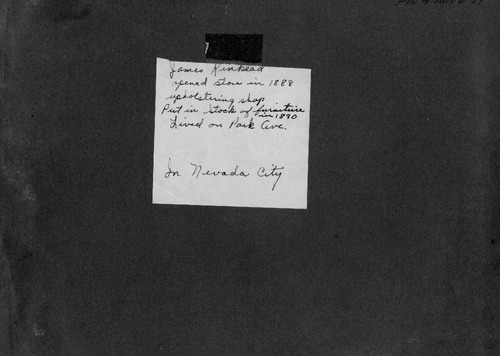 James Kinkead
opened store in 1888
upholstering shop
Put in stock of furniture
in 1890
Lived on Park Ave.
In Nevada City